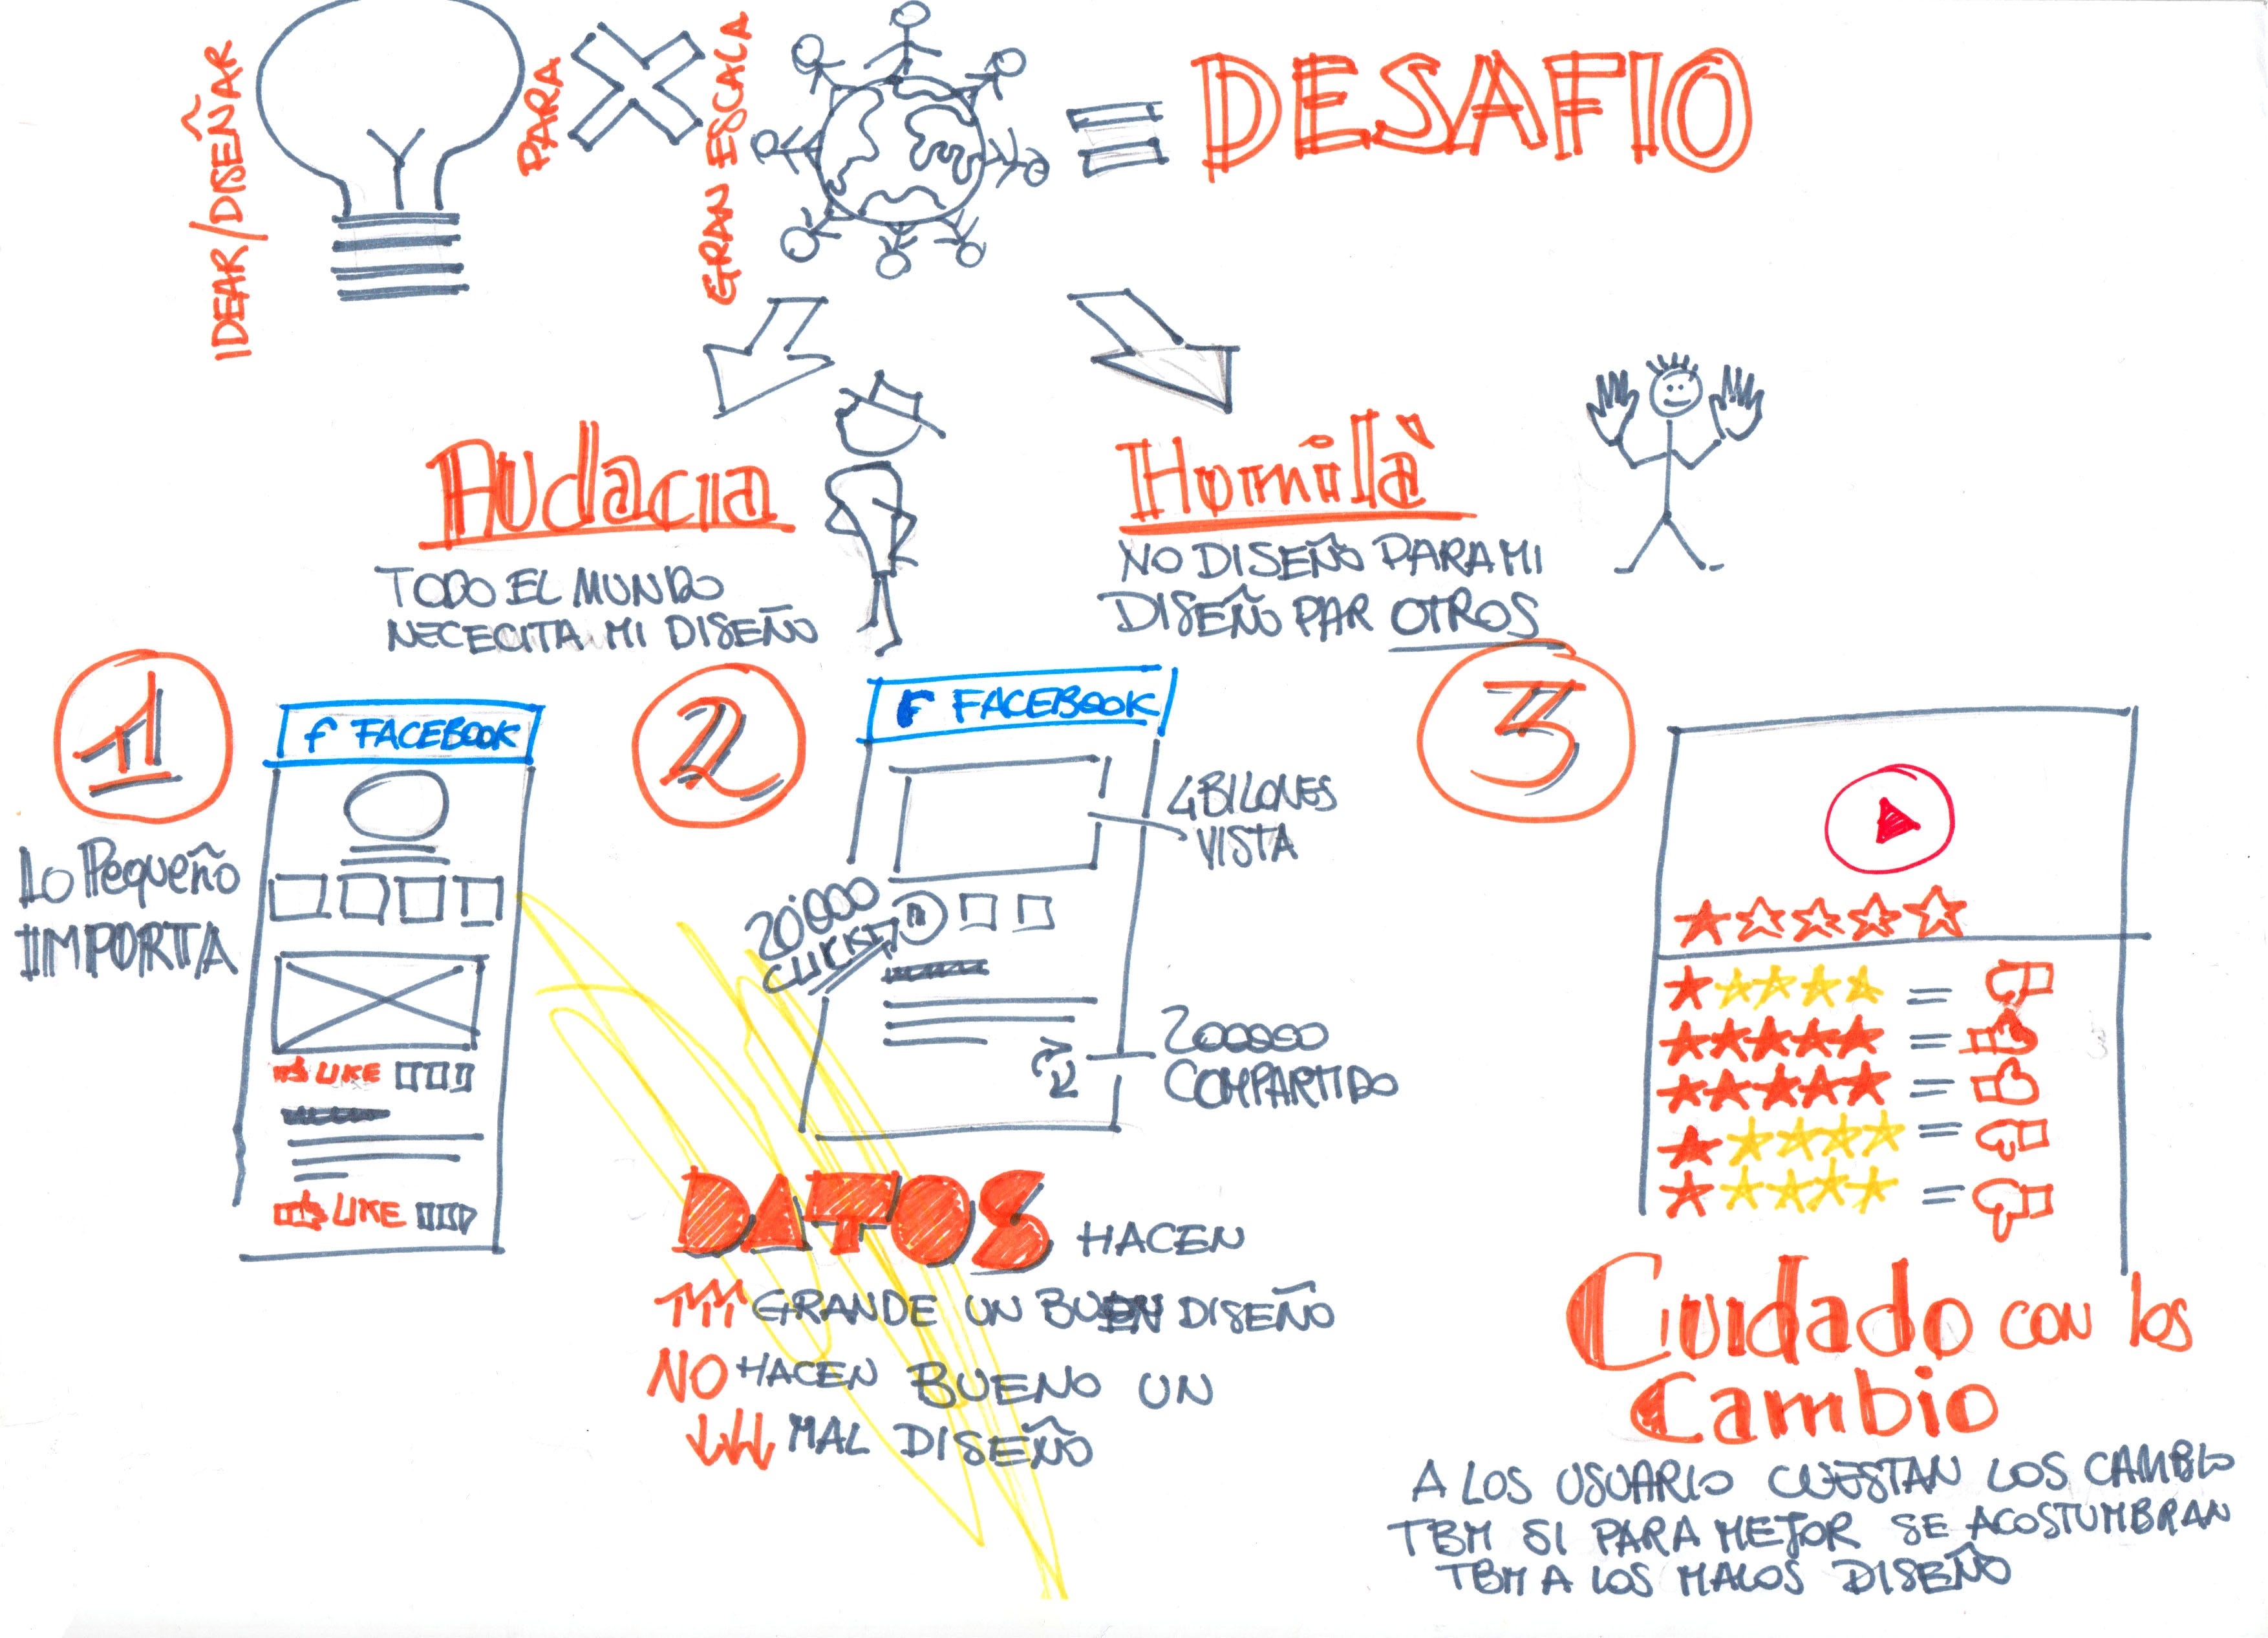 IDEAR/DISEÑAR
PARA
GRAN ESCALA
= DESAFIO
Audacia
TODO EL MUNDO
NECECITA MI DISEÑO
Humilà
NO DISEÑO PARA MI
DISEÑO PAR OTROS
1
LO PEQUEÑO
IMPORTA
f FACEBOOK
LIKE
LIKE
2
F FACEBOOK
4 BILONES
VISTA
20'000
CLICKS
200000
COMPARTIDO
DATOS HACEN
GRANDE UN BUEN DISEÑO
NO HACEN BUENO UN
MAL DISEÑO
3
=
=
=
=
=
Cuidado con los
Cambio
A LOS USUARIO CUESTAN LOS CAMBIO
TBM SI PARA MEJOR SE ACOSTUMBRAN
TBM A LOS MALOS DISEÑO